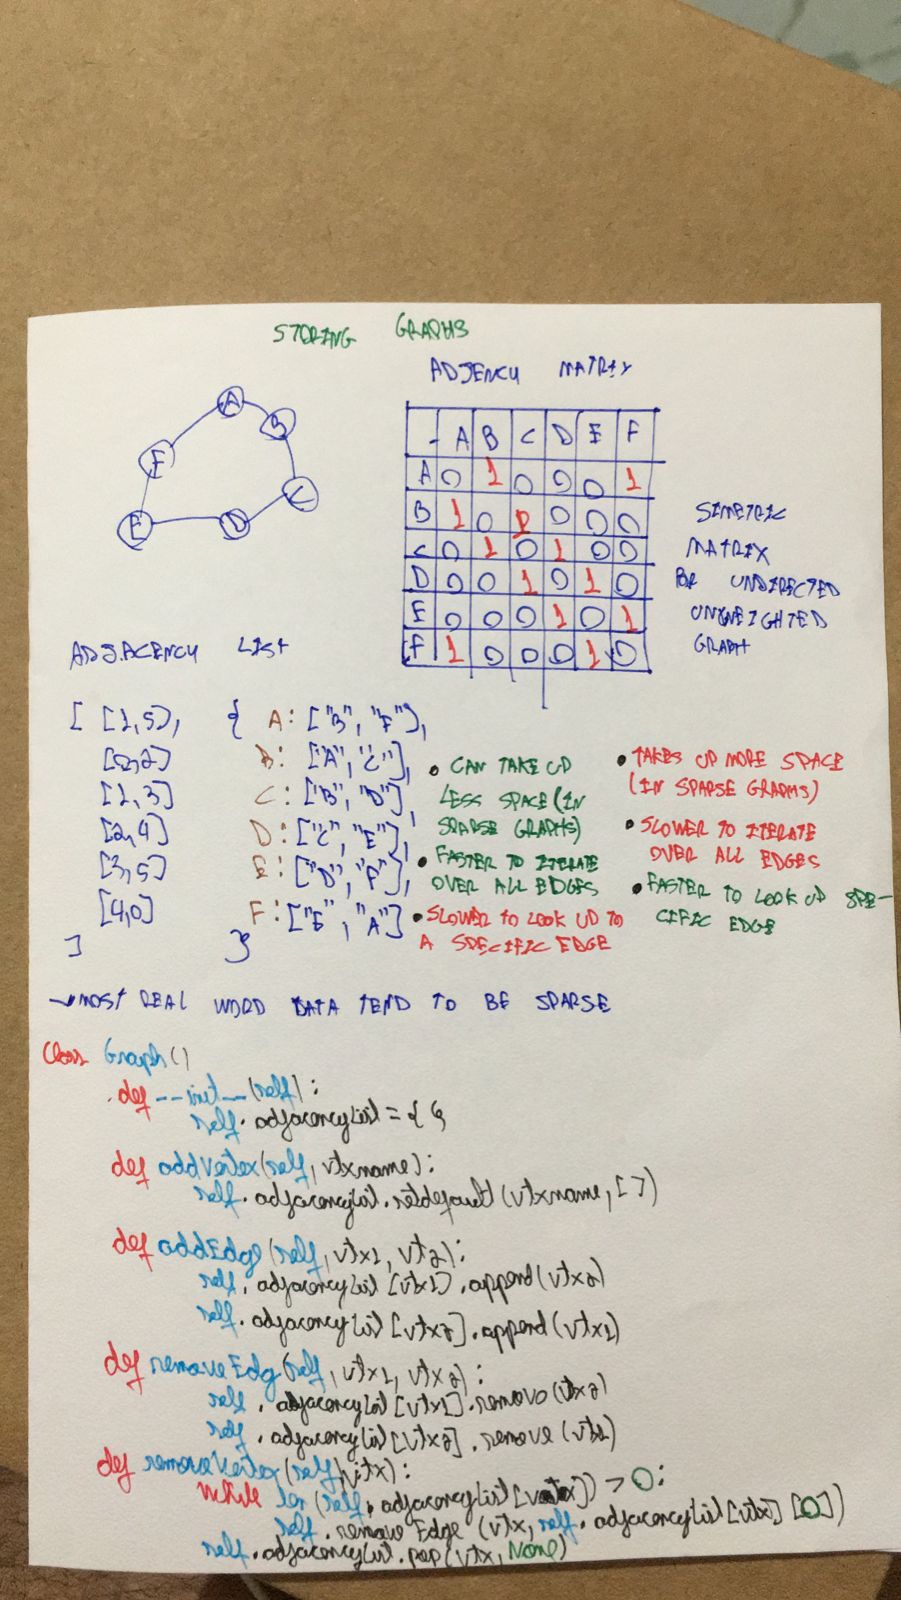 STORING GRAPHS
ADJENCY MATRIX
A
B
F
C
E
D
- A B C D E F
A 0 1 0 0 0 1
B 1 0 1 0 0 0
C 0 1 0 1 0 0
D 0 0 1 0 1 0
E 0 0 0 1 0 1
F 1 0 0 0 1 0
SIMETRIC
MATRIX
FOR UNDIRECTED
UNWEIGHTED
GRAPH
ADJACENCY LIST
[ [1,5], { A: ["B", "F"],
[0,2] B: ["A", "C"],
[1,3] C: ["B", "D"],
[2,4] D: ["C", "E"],
[3,5] E: ["D", "F"],
[4,0] F: ["E", "A"]
] }
• CAN TAKE UP
LESS SPACE (IN
SPARSE GRAPHS)
• FASTER TO ITERATE
OVER ALL EDGES
• SLOWER TO LOOK UP TO
A SPECIFIC EDGE
• TAKES UP MORE SPACE
(IN SPARSE GRAPHS)
• SLOWER TO ITERATE
OVER ALL EDGES
• FASTER TO LOOK UP SPE-
CIFIC EDGE
→ MOST REAL WORD DATA TEND TO BE SPARSE
Class Graph()
def __init__(self):
self.adjacencyList = {}
def addVertex(self, vtxname):
self.adjacencyList.setdefault(vtxname, [])
def addEdge(self, vtx1, vtx2):
self.adjacencyList[vtx1].append(vtx2)
self.adjacencyList[vtx2].append(vtx1)
def removeEdge(self, vtx1, vtx2):
self.adjacencyList[vtx1].remove(vtx2)
self.adjacencyList[vtx2].remove(vtx1)
def removeVertex(self, vtx):
while len(self.adjacencyList[vtx]) > 0:
self.removeEdge(vtx, self.adjacencyList[vtx][0])
self.adjacencyList.pop(vtx, None)